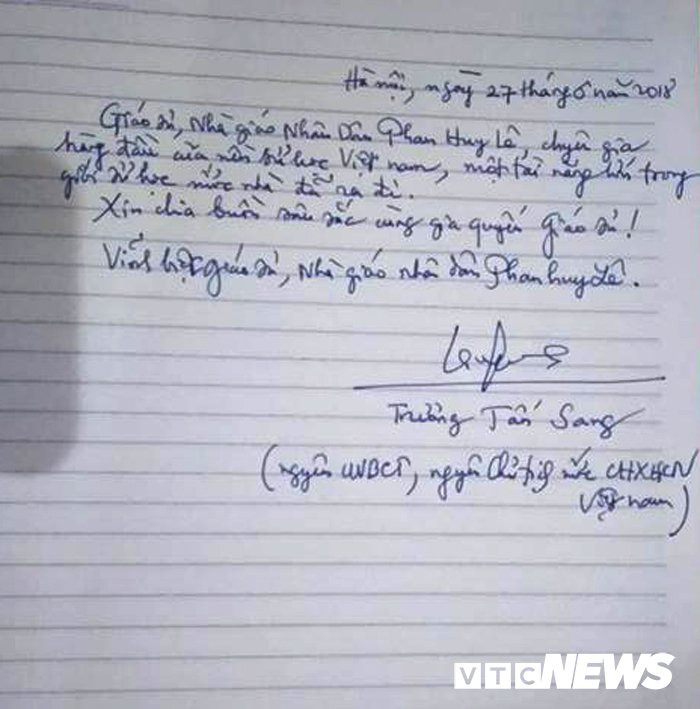 Hà nội, ngày 27 tháng 6 năm 2018
Giáo sư, Nhà giáo Nhân Dân Phan Huy Lê, chuyên gia
hàng đầu của nền sử học Việt nam, một tài năng lớn trong
giới sử học nước nhà đã ra đi.
Xin chia buồn sâu sắc cùng gia quyến giáo sư!
Vĩnh biệt giáo sư, Nhà giáo nhân dân Phan huy Lê.
Trương Tấn Sang
(nguyên UVBCT, nguyên Chủ tịch nước CHXHCN
Việt nam)
VTC NEWS